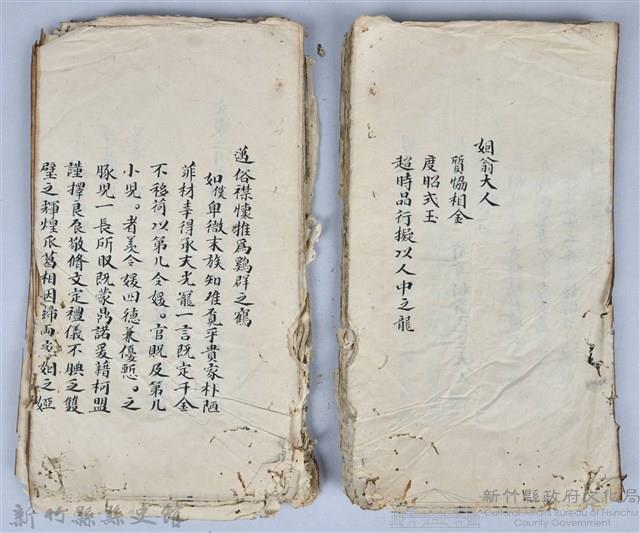 姻翁大人
質協相金
度昭式玉
超時品行擬以人中之龍
邁俗襟懷雅為鷄群之鶴
如僕卑微末族知难覔乎貴家朴陋
菲材幸得承夫光寵一言既定千金
不移荷以第几令媛。官既及第几
小児。者羨令媛四德兼優慙。之
豚児一長所取既蒙禹諾爰藉柯盟
謹擇良辰敬脩文定禮儀不腆乏雙
璧之輝煌瓜葛相因締両宅姻之婭
新竹縣縣史館
新竹縣政府文化局
Cultural Affairs Bureau of Hsinchu
County Government